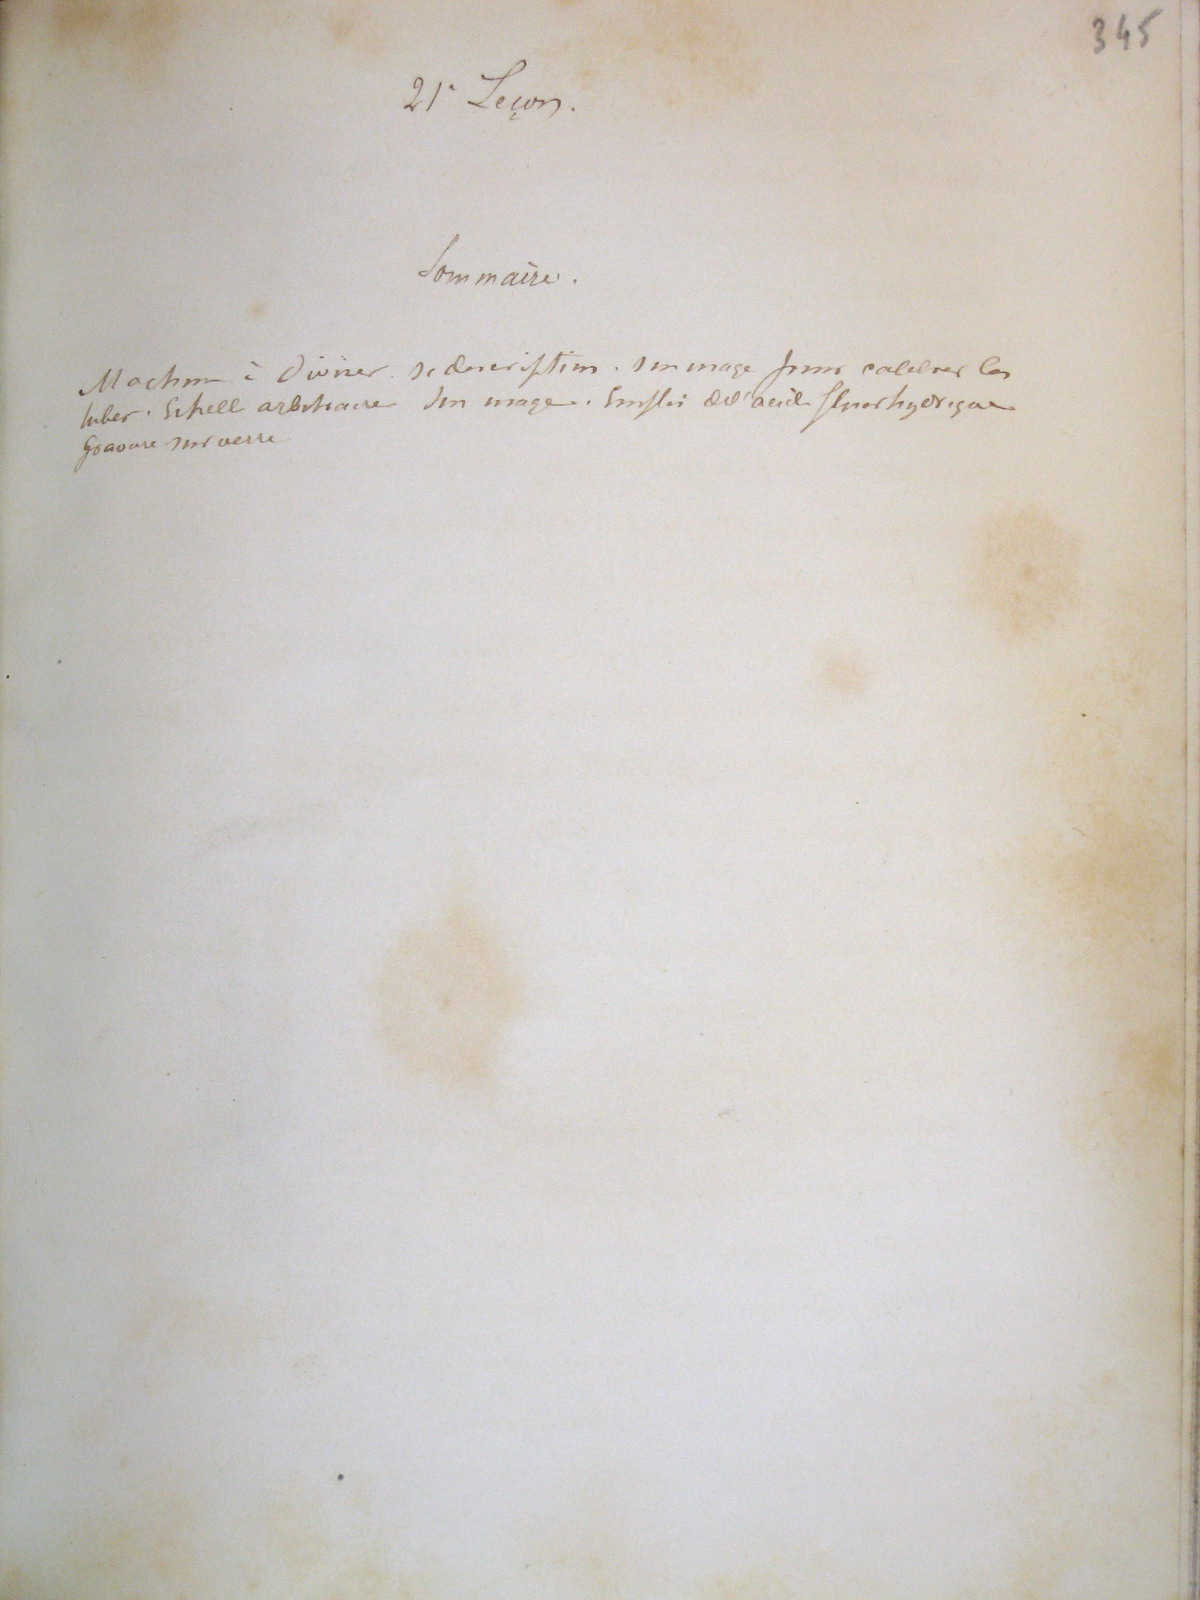 345
21e Leçon.
Sommaire.
Machine à Diviser. Sa description. Son usage pour calibrer les
tubes. Echell arbitraire Son usage. Emploi de l'acide fluorhydrique
Gravure sur verre